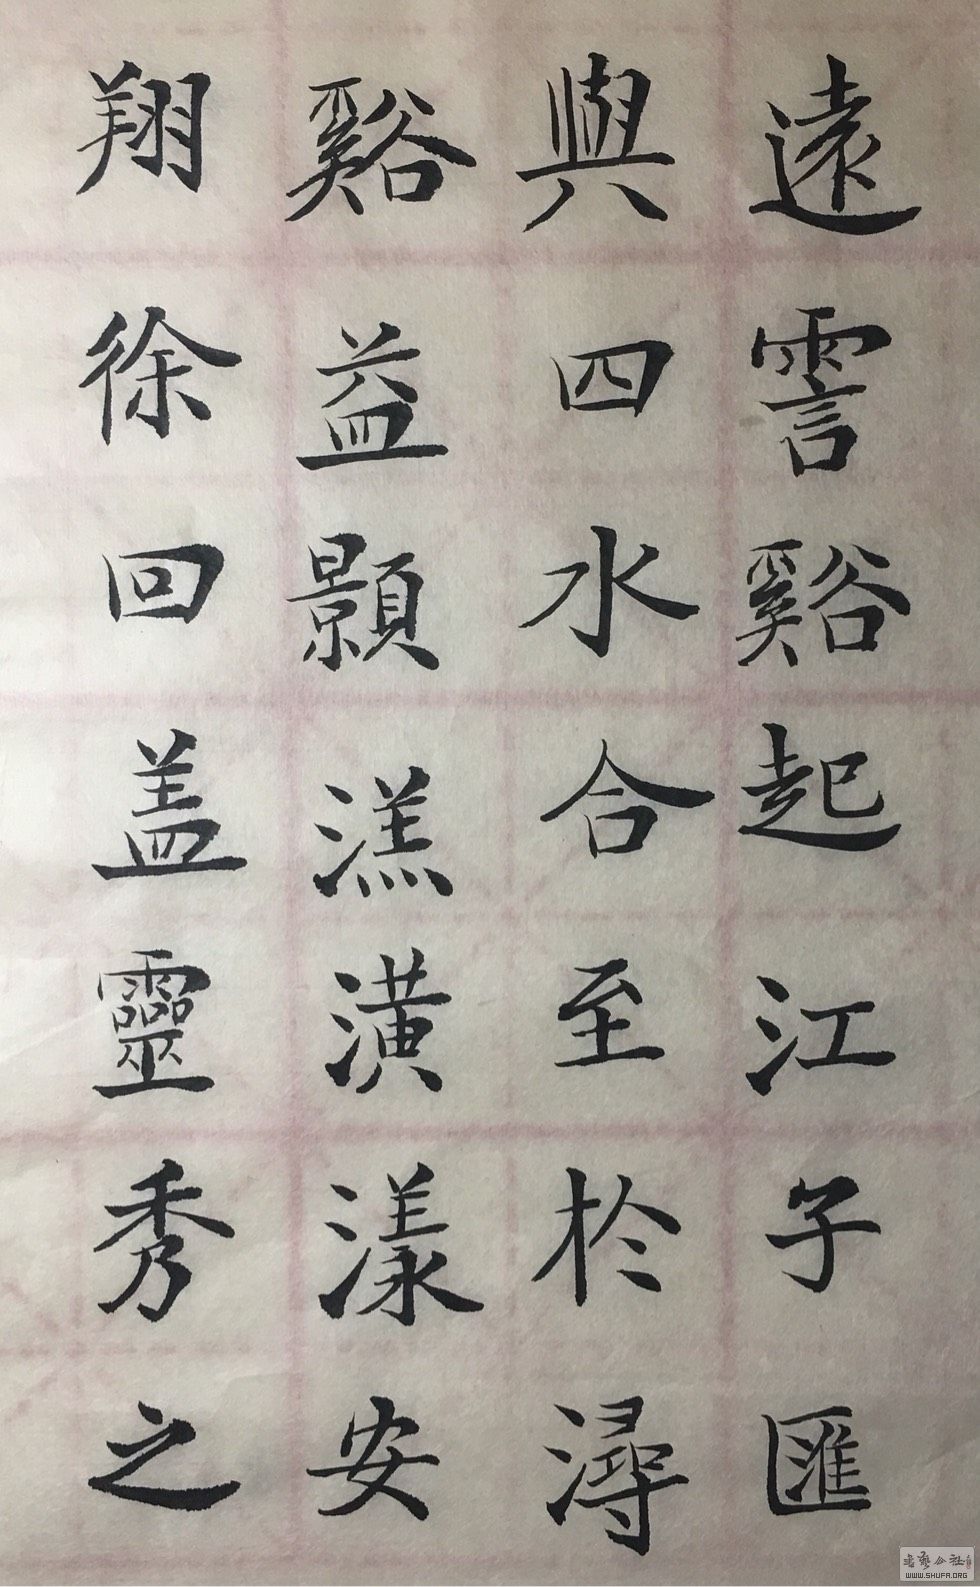 遠霅谿起江子匯
與四水合至於潯
谿益顥溔潢漾安
翔徐回盖靈秀之
書藝公社
WWW.SHUFA.ORG